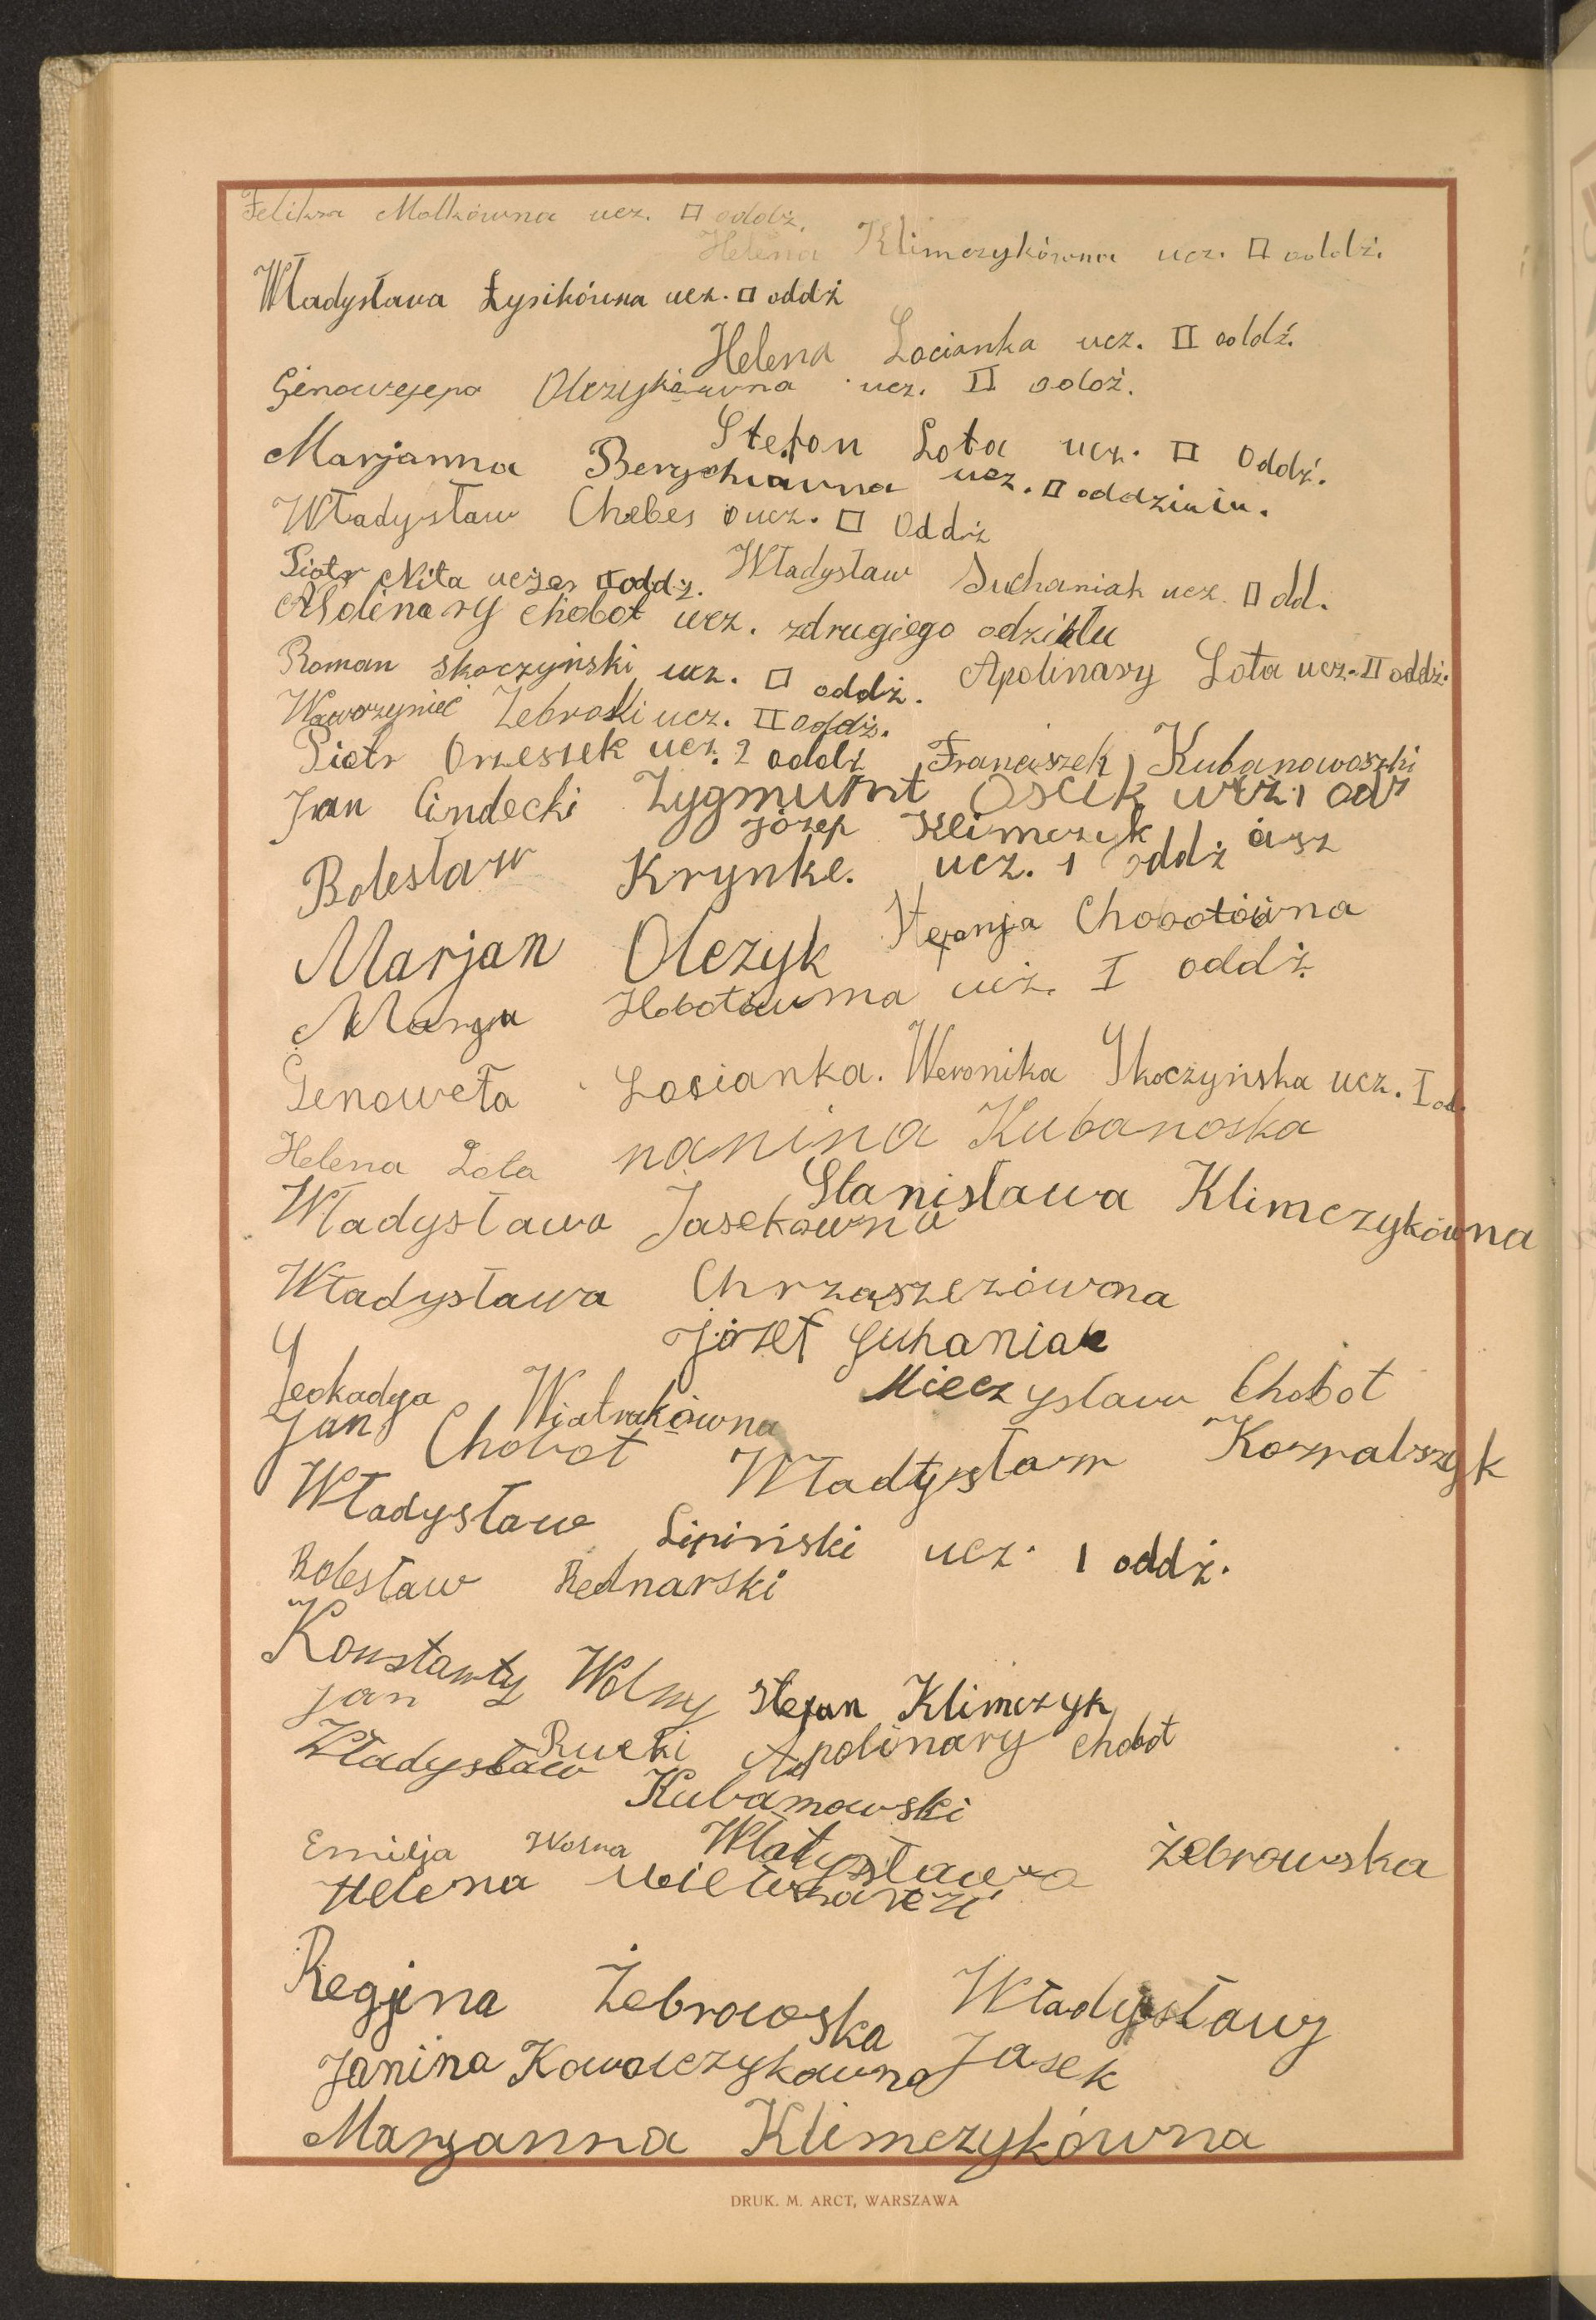 Feliksa Molkówna ucz. II oddz.
Helena Klimczykówna ucz. II oddź.
Władysława Łysikówna ucz. II oddź
Helena Locianka ucz. II oddź.
Genowefa Olczykówna ucz. II oddź.
Stefan Lota ucz. II Oddź.
Marjanna Berychówna ucz. II oddziału.
Władysław Chebes ucz. II Oddz
Piotr Nita uczeń II oddz.
Władysław Suchaniak ucz. II dd.
Apolinary Chobot ucz. zdrugiego odziału
Roman Skoczyński ucz. II oddż.
Apolinary Lota ucz. II oddź.
Wawrzyniec Zebroski ucz. II oddż.
Piotr Orzeszek ucz. 2 oddz
Franciszek Kubanowoszki
Jan Cindecki
Zygmunt Oscik ucz. 1 odz
Józef Klimczyk
Bolesław Krynke. ucz. 1 oddż
Marjan Olczyk
Stefanja Chobotówna
Marja Hobotówna ucz. I oddż
Genowefa Łosianka.
Weronika Skoczyńska ucz. I od.
Helena Lota
nanina Kubanoska
Stanisława Klimczykówna
Władysława Jasekówna
Władysława Chrząszczówna
Józef Suhaniak
Leokadya Wiatrakówna
Mieczysław Chobot
Jan Chobot
Władysław Kowalszyk
Władysław Lipiński ucz. 1 oddż.
Bolesław Bednarski
Konstanty Wolny
Stefan Klimczyk
Jan Rucki
Apolinary Chobot
Władysław Kubanowski
Emilja Wolna
Władysława Żebrowska
Helena
Regjina Żebrowoska
Władysławy Jasek
Janina Kowalczykówna
Marjanna Klimczykówna
DRUK. M. ARCT, WARSZAWA